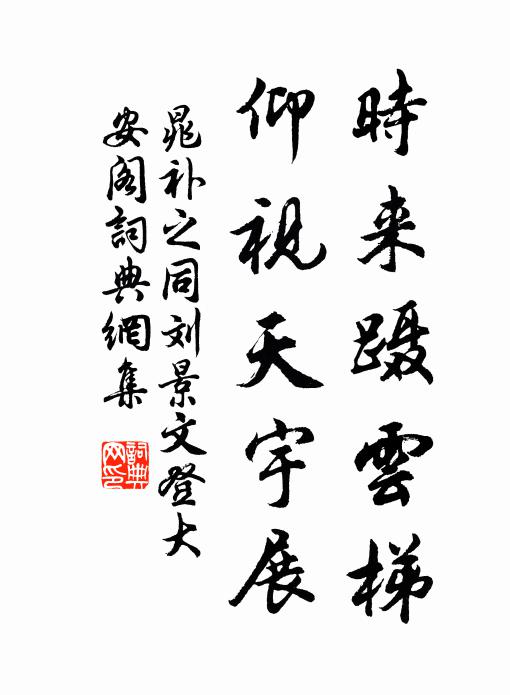 時来蹑雲梯
仰視天宇展
晁补之同刘景文登大
安阁詞典網集
詞典网印